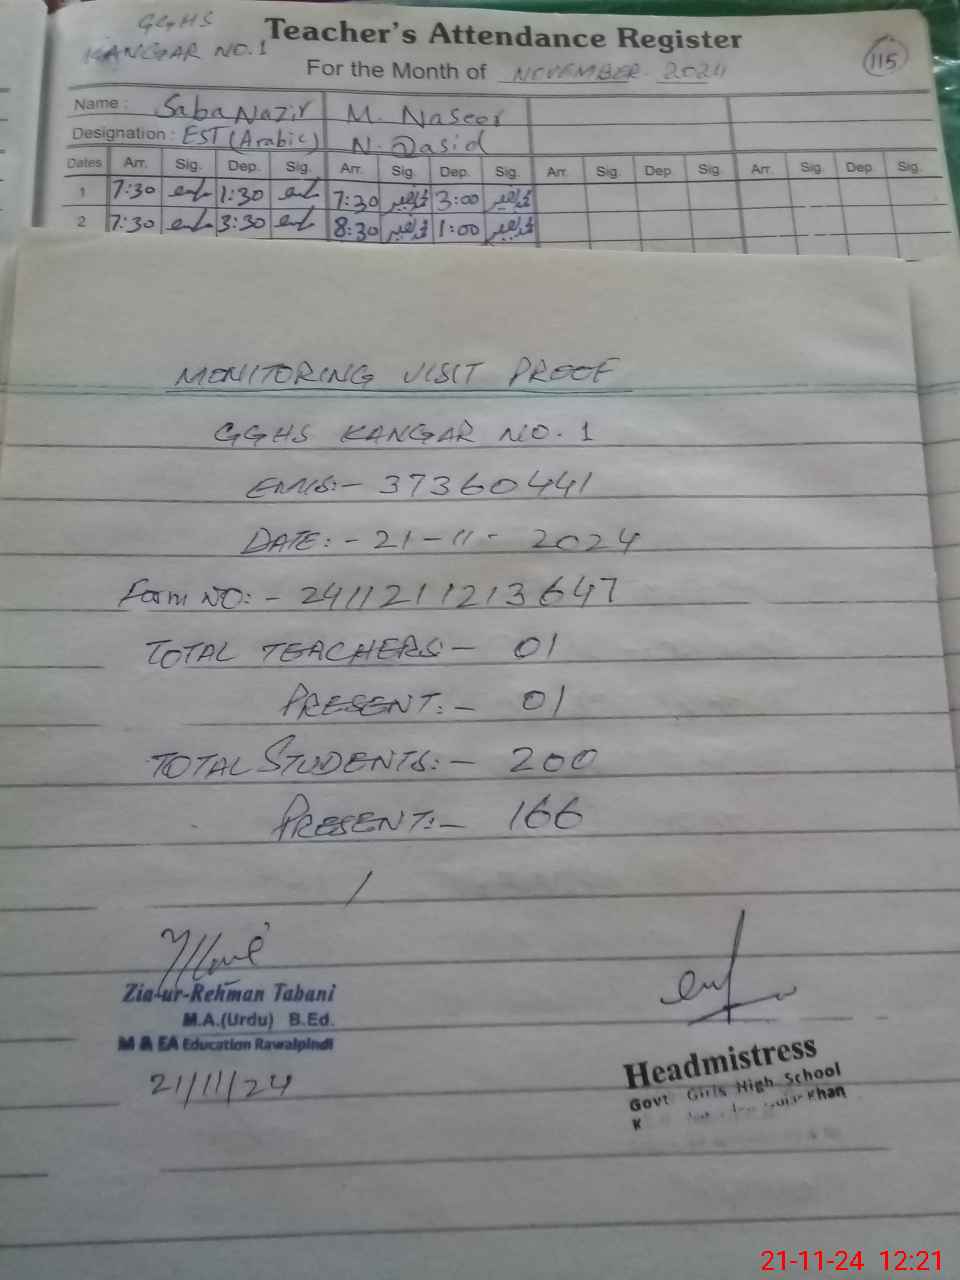 GGHS
KANGAR NO.1
Teacher's Attendance Register
For the Month of NOVEMBER 2024
115
Name : Saba Nazir M. Naseer
Designation : EST (Arabic) N. Qasid
Dates Arr. Sig. Dep. Sig. Arr. Sig. Dep. Sig. Arr. Sig. Dep. Sig. Arr. Sig. Dep. Sig.
1 7:30 1:30 7:30 3:00
2 7:30 3:30 8:30 1:00
MONITORING VISIT PROOF
GGHS KANGAR NO. 1
EMIS:- 37360441
DATE:- 21-11- 2024
Form NO:- 241121121213647
TOTAL TEACHERS:- 01
PRESENT:- 01
TOTAL STUDENTS:- 200
PRESENT:- 166
Zia-ur-Rehman Tabani
M.A.(Urdu) B.Ed.
M & EA Education Rawalpindi
21/11/24
Headmistress
Govt Girls High School
K Khan
21-11-24 12:21